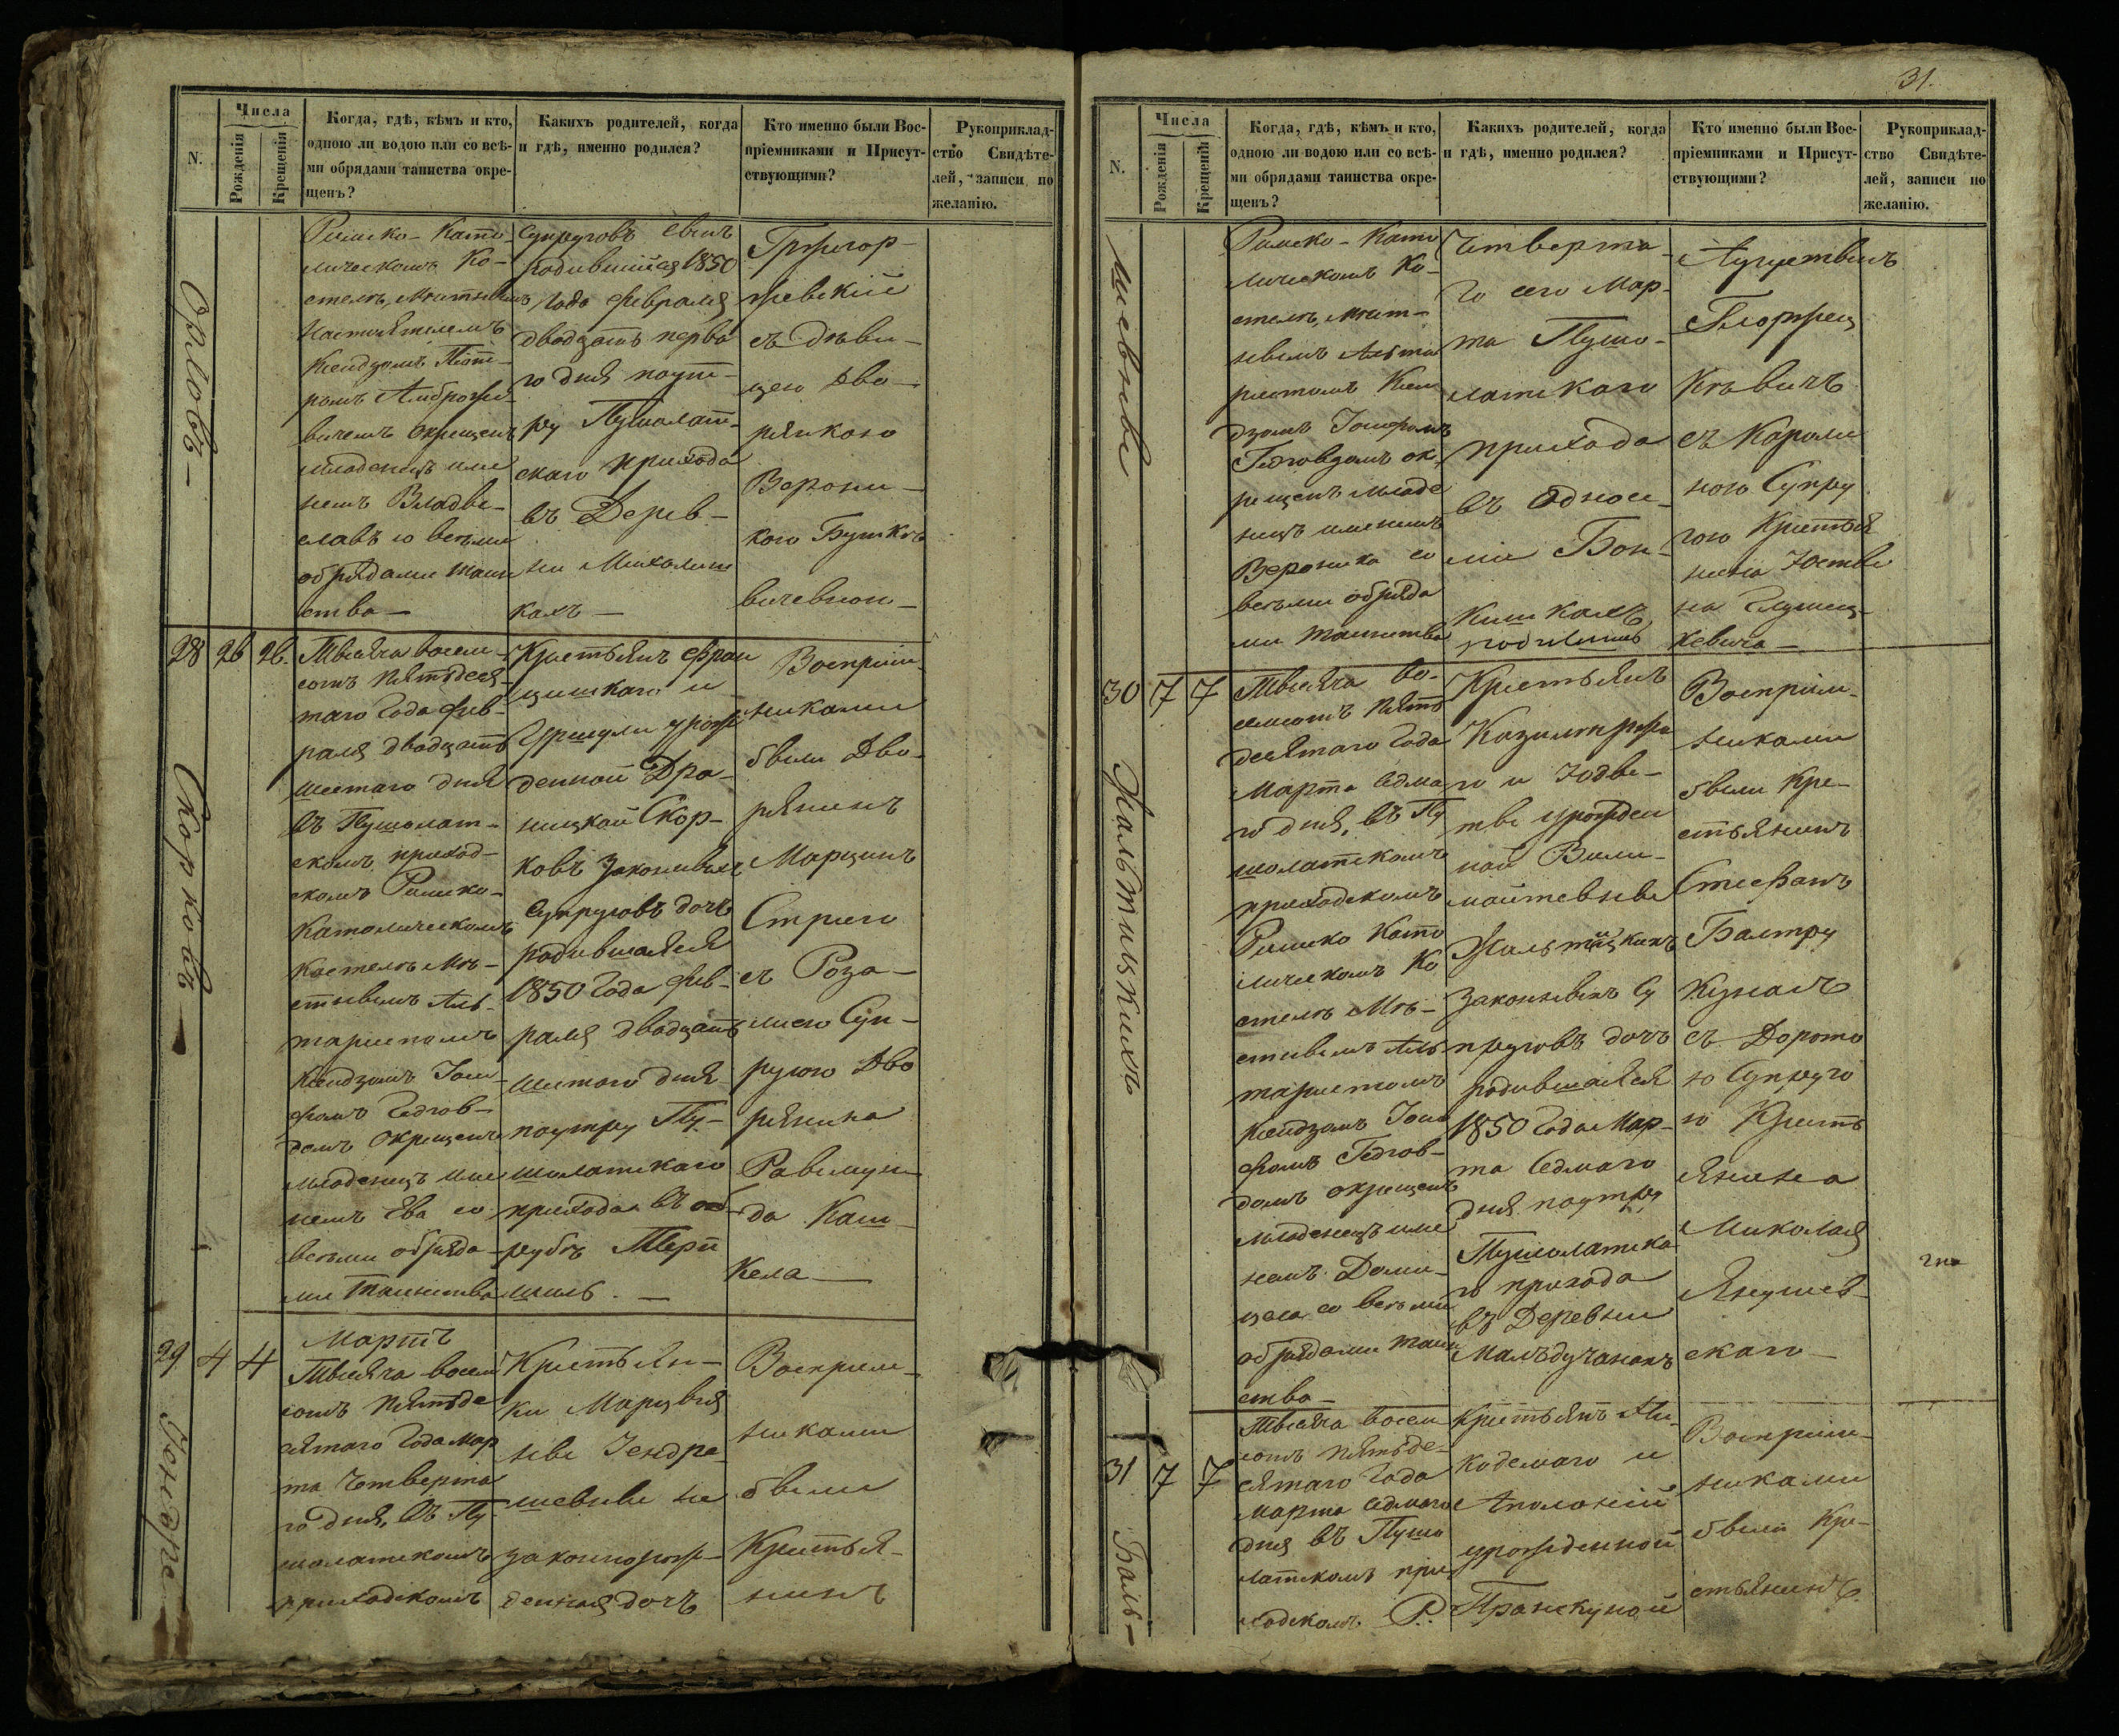 N.
Числа
Рожденія
Крещенія
Когда, гдѣ, кѣмъ и кто,
одною ли водою или со всѣ-
ми обрядами таинства окре-
щенъ?
Какихъ родителей, когда
и гдѣ, именно родился?
Кто именно были Вос-
пріемниками и Присут-
ствующими?
Рукоприклад-
ство Свидѣте-
лей, записи по
желанію.
Римско-Като-
лическомъ Ко-
стелѣ, мѣстнымъ
Настоятелемъ
Ксендзомъ Пет-
ромъ Амброже-
вичемъ окрещенъ
младенецъ име
немъ Влады-
славъ со всѣми
обрядами таин
ства —
Супруговъ сынъ
родившійся 1850
года февраля
двадцать перва
го дня поут-
ру Пушолат-
скаго прихода
въ Дерев-
ни Михалиш
кахъ —
Гржегор-
жевскій
съ дѣви-
цею Дво-
рянкою
Верони-
кою Бутке
вичевною —
28
26
26.
Скорковъ —
Тысяча восем-
сотъ пятьдеся-
таго Года фев-
раля двадцать
шестаго дня
въ Пушолат-
скомъ приход-
скомъ Римско-
Католическомъ
костелѣ мѣ-
стнымъ Аль-
таристомъ
Ксендзомъ Іоси-
фомъ Гедгов-
домъ окрещенъ
младенецъ име
немъ Ева со
всѣми обряда-
ми таинства
Крестьянъ Фран
цишкаго и
Уршули урож
денной Дра-
ницкой Скор-
ковъ Законныхъ
Супруговъ дочь
родившаяся
1850 Года фев-
раля двадцать
шестаго дня
поутру Пу-
шолатскаго
прихода въ об-
рубѣ
Воспріем-
никами
были Дво-
рянинъ
Марцинъ
Стрыго
съ Роза-
ліею Суп-
ругою Дво
рянина
29
4
4
Мартъ
Тысяча восем
сотъ пятьде
сятаго Года мар
та четверта
го дня, въ Пу-
шолатскомъ
приходскомъ
Крестьян-
ки Марцыя
ны Іендра-
шевны не
законнорож-
денная дочь
Воспріем-
никами
были
Крестья-
нинъ
31.
N.
Числа
Рожденія
Крещенія
Когда, гдѣ, кѣмъ и кто,
одною ли водою или со всѣ-
ми обрядами таинства окре-
щенъ?
Какихъ родителей, когда
и гдѣ, именно родился?
Кто именно были Вос-
пріемниками и Присут-
ствующими?
Рукоприклад-
ство Свидѣте-
лей, записи по
желанію.
шевны
Римско-Като
лическомъ Ко-
стелѣ, мѣст-
нымъ Альта
ристомъ Ксен
дзомъ Іосифомъ
Гедговдомъ ок-
рещенъ младе
нецъ именемъ
Вероника со
всѣми обряда
ми таинства
Четверта-
го сего Мар-
та Пушо-
латскаго
прихода
въ
родилась
Августынъ
съ Кароли
ною Супру
гою Крестья
нина Юсты
на
30
7
7
Жальтишкихъ
Тысяча во-
семсотъ пять
десятаго Года
Марта седма
го дня, въ Пу
шолатскомъ
приходскомъ
Римско Като
лическомъ Ко
стелѣ Мѣ-
стнымъ Аль
таристомъ
Ксендзомъ Іоси
фомъ Гедгов-
домъ окрещенъ
младенецъ име
немъ Доми-
цела со всѣми
обрядами таин
ства —
Крестьянъ
Казимержа
го и Юдвы-
ги урожден
ной Вили-
майтевны
Законныхъ Су
пруговъ дочь
родившаяся
1850 Года Мар-
та седмаго
дня поутру
Пушолатска
го прихода
въ Деревни
Воспріем-
никами
были Кре-
стьянинъ
Стефанъ
Балтру
кунасъ
съ Дорото
ю Супруго
ю Кресть
янина
Миколая
Янушев-
скаго —
31
7
7
Баль-
Тысяча восем
сотъ пятьде-
сятаго Года
марта седмаго
дня въ Пушо
латскомъ при
ходскомъ Р.
Крестьянъ Ни-
кодемаго и
Аполоніи
урожденной
Пранскуной
Воспріем-
никами
были Кре-
стьянинъ